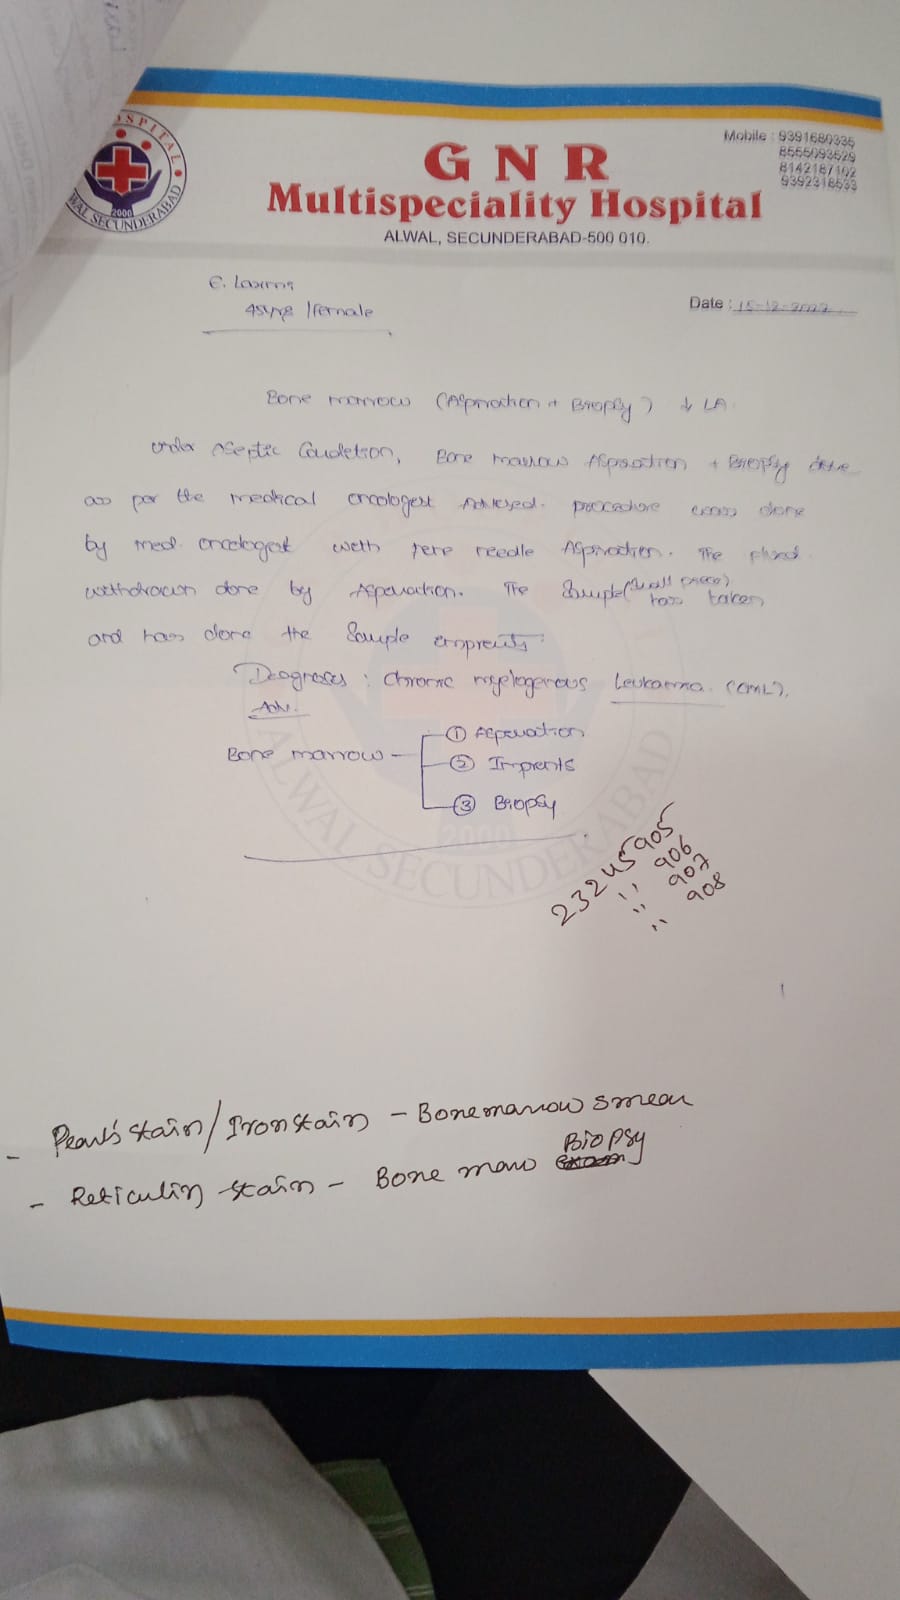 HOSPITAL
WAL SECUNDERABAD
2000
Mobile : 9391680335
8555093529
8142187102
9392318533
G N R
Multispeciality Hospital
ALWAL, SECUNDERABAD-500 010.
E. Laxmi
45yrs /female
Date : 15-12-2022
Bone marrow (Aspiration + Biopsy) ↓ LA
under Aseptic Condetion, Bone marrow Aspiration + Biopsy done
as per the medical oncologest Advised. procedure was done
by med. oncologest weth needle Aspiration. The fluid
withdrawn done by Asperation. The Sample (small piece) has taken
and has done the Sample emprents:
Deagnoses : Chronic myelogenous Leukaema. (CML).
Adv.
Bone marrow – ① Asperation
② Imprents
③ Biopsy
23245905
" 906
" 907
" 908
ALWAL SECUNDERABAD
2000
- Pearl's stain / Iron stain – Bonemarrow smear
- Reticulin stain – Bone marrow Biopsy